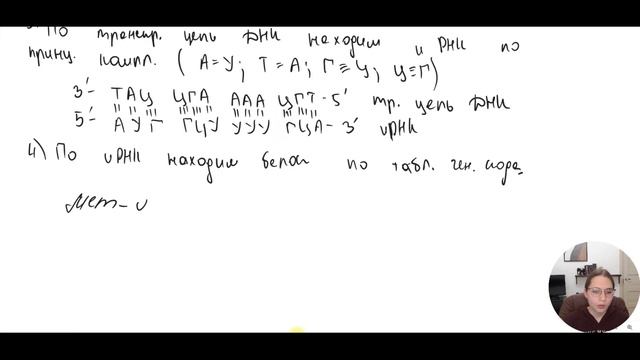 По транскр. цепь ДНК находим и РНК по
принц. компл. (А=У; Т=А; Г≡Ц; Ц≡Г)
3'- ТАЦ ЦГА ААА ЦГТ-5' тр. цепь ДНК
5'- АУГ ГЦУ УУУ ГЦА-3' иРНК
4) По иРНК находим белок по табл. ген. кода
Мет-